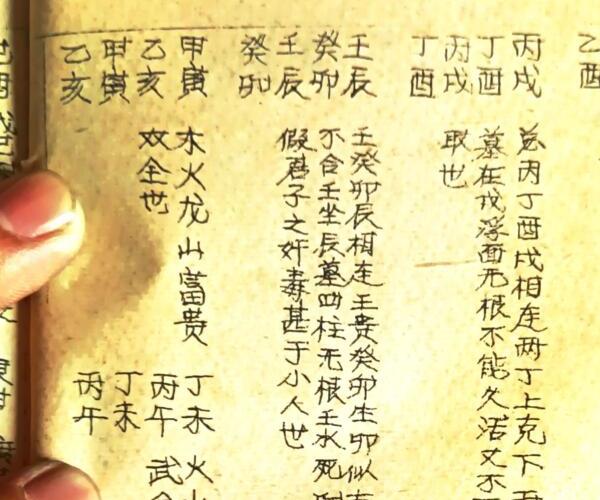 乙酉
丙戌 总丙丁酉戌相连两丁上克下
丁酉 墓在戌浮面无根不能久活又不
丙戌 取也
丁酉
壬辰 壬癸卯辰相连壬贵癸卯生卯似
癸卯 不合壬坐辰墓四柱无根壬水死
壬辰 假君子之奸毒甚于小人也
癸卯
甲寅 木火龙山富贵 丁未 火
乙亥 双全也 丙午 武
甲寅 丁未
乙亥 丙午